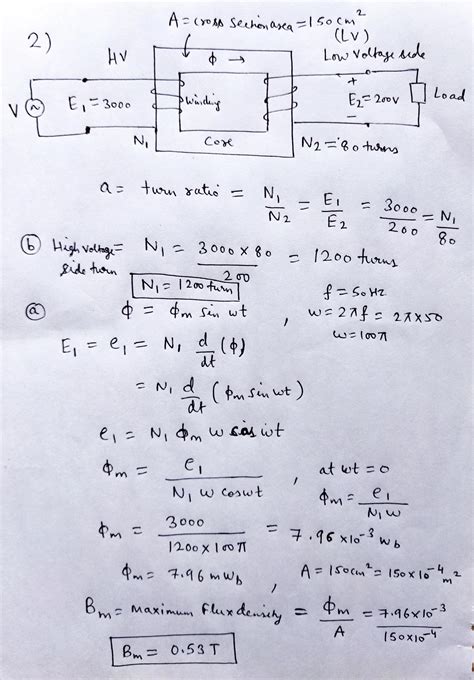 A = cross section area = 150 cm²
2)
HV
Φ →
(LV)
Low voltage side
V
E₁ = 3000
Winding
+
E₂ = 200V
−
Load
N₁
Core
N2 = 80 turns
a = turn ratio = N₁/N₂ = E₁/E₂ = 3000/200 = N₁/80
(b) High voltage side turn = N₁ = 3000 × 80/200 = 1200 turns
N₁ = 1200 turn
f = 50 Hz
(a) Φ = Φm sin wt , w = 2πf = 2π×50
w = 100π
E₁ = e₁ = N₁ d/dt (Φ)
= N₁ d/dt (Φm sin wt)
e₁ = N₁ Φm w cos wt
Φm = e₁/N₁ w cos wt , at wt = 0
Φm = e₁/N₁w
Φm = 3000/1200 × 100π = 7.96 ×10⁻³ Wb
Φm = 7.96 mWb , A = 150cm² = 150×10⁻⁴ m²
Bm = maximum flux density = Φm/A = 7.96×10⁻³/150×10⁻⁴
Bm = 0.53T